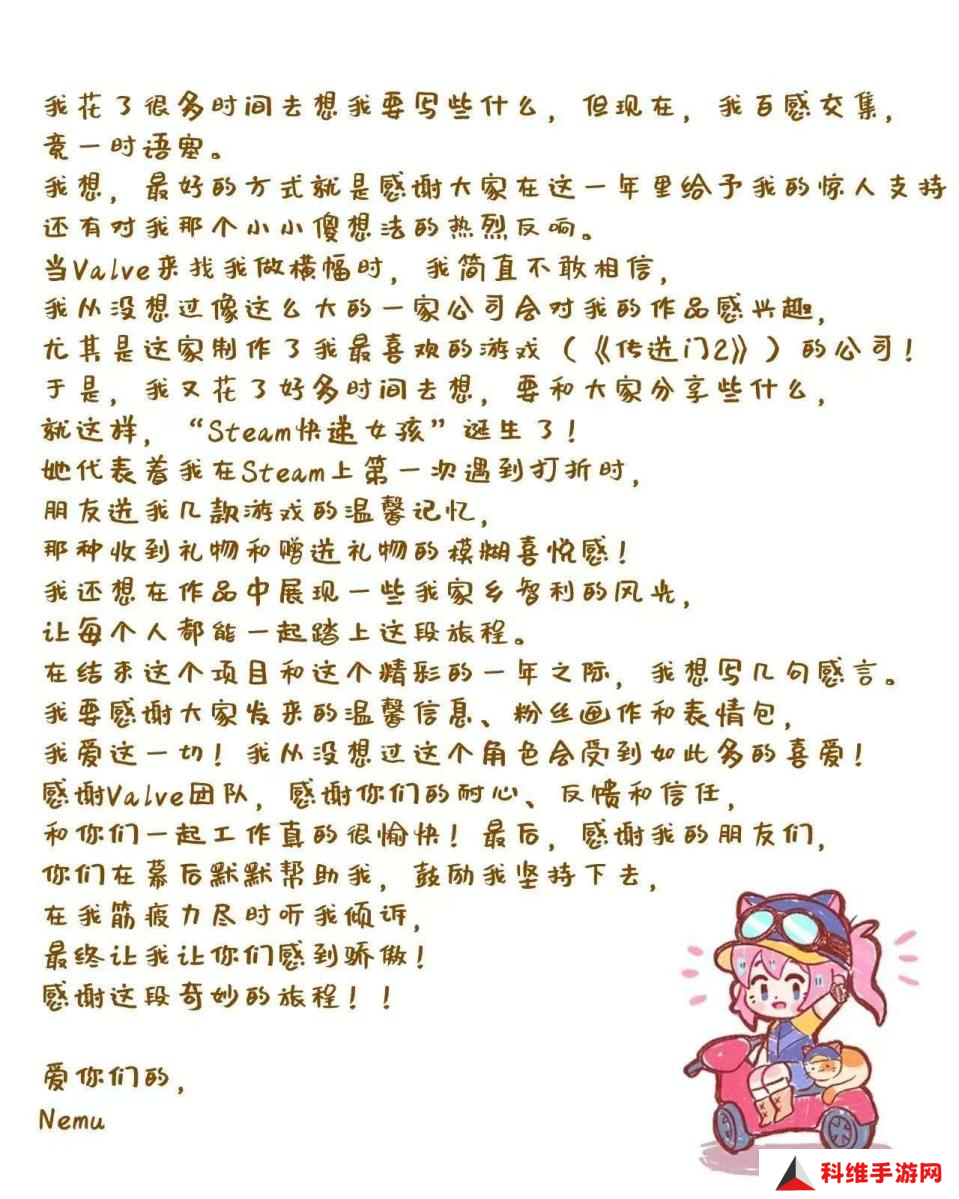 我花了很多时间去想我要写些什么，但现在，我百感交集，
竟一时语塞。
我想，最好的方式就是感谢大家在这一年里给予我的惊人支持
还有对我那个小小傻想法的热烈反响。
当Valve来找我做横幅时，我简直不敢相信，
我从没想过像这么大的一家公司会对我的作品感兴趣，
尤其是这家制作了我最喜欢的游戏（《传送门2》）的公司！
于是，我又花了好多时间去想，要和大家分享些什么，
就这样，“Steam快递女孩”诞生了！
她代表着我在Steam上第一次遇到打折时，
朋友送我几款游戏的温馨记忆，
那种收到礼物和赠送礼物的模糊喜悦感！
我还想在作品中展现一些我家乡智利的风光，
让每个人都能一起踏上这段旅程。
在结束这个项目和这个精彩的一年之际，我想写几句感言。
我要感谢大家发来的温馨信息、粉丝画作和表情包，
我爱这一切！我从没想过这个角色会受到如此多的喜爱！
感谢Valve团队，感谢你们的耐心、反馈和信任，
和你们一起工作真的很愉快！最后，感谢我的朋友们，
你们在幕后默默帮助我，鼓励我坚持下去，
在我筋疲力尽时听我倾诉，
最终让我让你们感到骄傲！
感谢这段奇妙的旅程！！
爱你们的，
Nemu
科维手游网